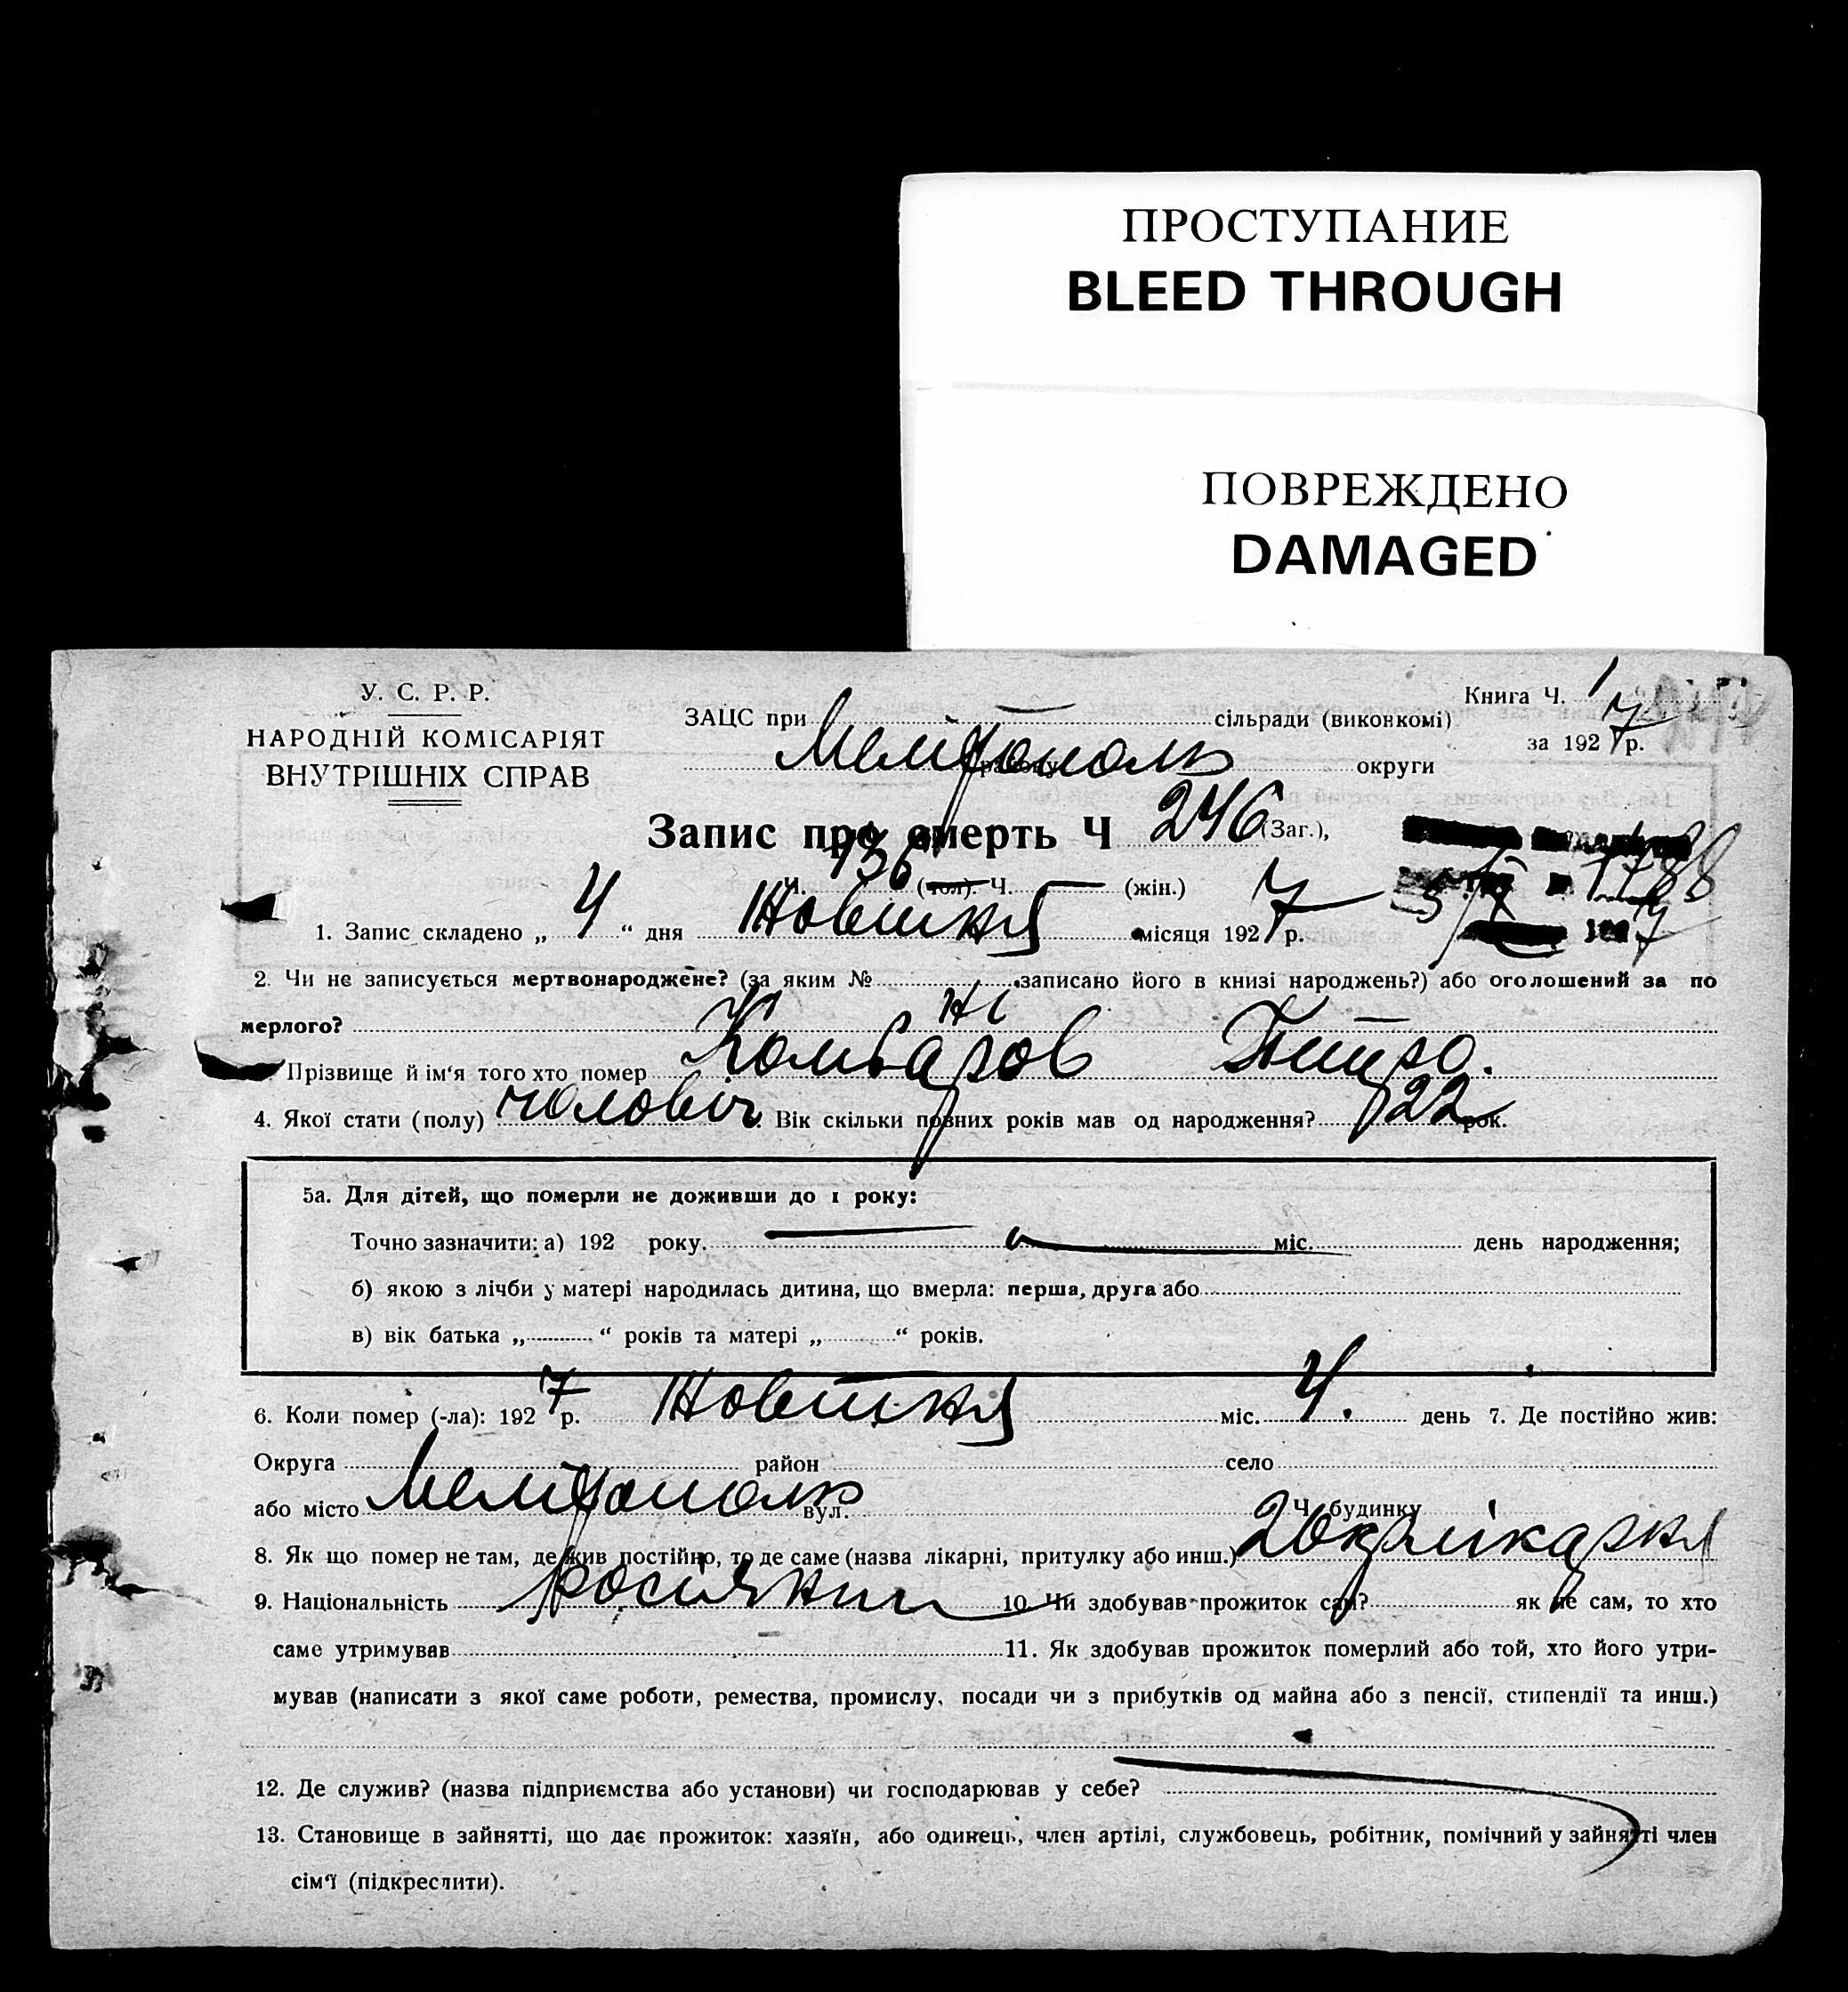 ПРОСТУПАНИЕ
BLEED THROUGH
ПОВРЕЖДЕНО
DAMAGED
У. С. Р. Р.
НАРОДНІЙ КОМІСАРІЯТ
ВНУТРІШНІХ СПРАВ
ЗАЦС при сільради (виконкомі)
Мелітополь району округи
Книга Ч. 1
за 1927 р.
Запис про смерть Ч 246 (Заг.),
Ч. 136 (чол). Ч. — (жін.)
1788
1. Запис складено „ 4 “ дня Жовтня місяця 1927 р.
2. Чи не записується мертвонароджене? (за яким № записано його в книзі народжень?) або оголошений за по
мерлого? ні
Прізвище й ім'я того хто помер Комбаров Питро.
4. Якої стати (полу) чоловіч. Вік скільки повних років мав од народження? 22 рок.
5а. Для дітей, що померли не доживши до 1 року:
Точно зазначити: а) 192 року. міс. день народження;
б) якою з лічби у матері народилась дитина, що вмерла: перша, друга або
в) вік батька „ “ років та матері „ “ років.
6. Коли помер (-ла): 1927 р. Жовтня міс. 4. день 7. Де постійно жив:
Округа район село
або місто Мелітополь вул. Ч. будинку
8. Як що помер не там, де жив постійно, то де саме (назва лікарні, притулку або инш.) лікарня
9. Національність росіянин 10. Чи здобував прожиток сам? як не сам, то хто
саме утримував 11. Як здобував прожиток померлий або той, хто його утри-
мував (написати з якої саме роботи, ремества, промислу, посади чи з прибутків од майна або з пенсії, стипендії та инш.)
12. Де служив? (назва підприємства або установи) чи господарював у себе?
13. Становище в зайнятті, що дає прожиток: хазяїн, або одинець, член артілі, службовець, робітник, помічний у зайнятті член
сім'ї (підкреслити).